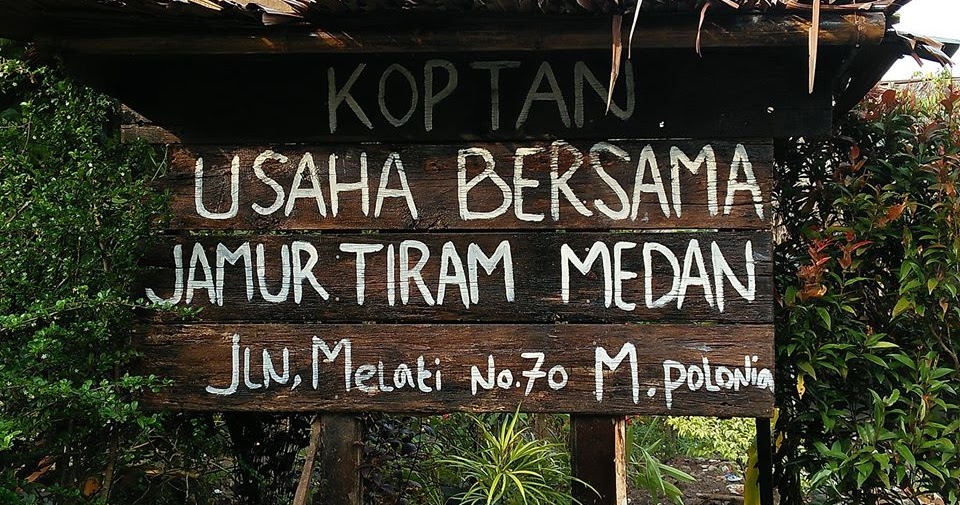 KOPTAN
USAHA BERSAMA
JAMUR TIRAM MEDAN
JLN, Melati No.70 M. polonia